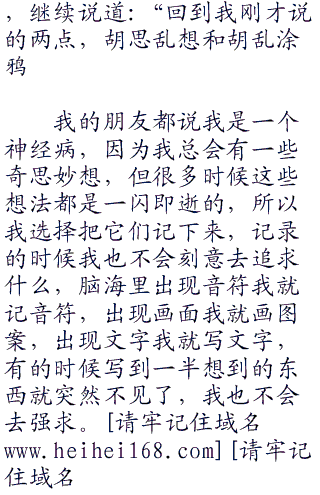 ，继续说道：“回到我刚才说
的两点，胡思乱想和胡乱涂
鸦
我的朋友都说我是一个
神经病，因为我总会有一些
奇思妙想，但很多时候这些
想法都是一闪即逝的，所以
我选择把它们记下来，记录
的时候我也不会刻意去追求
什么，脑海里出现音符我就
记音符，出现画面我就画图
案，出现文字我就写文字，
有的时候写到一半想到的东
西就突然不见了，我也不会
去强求。[请牢记住域名
www.heihei168.com][请牢记
住域名